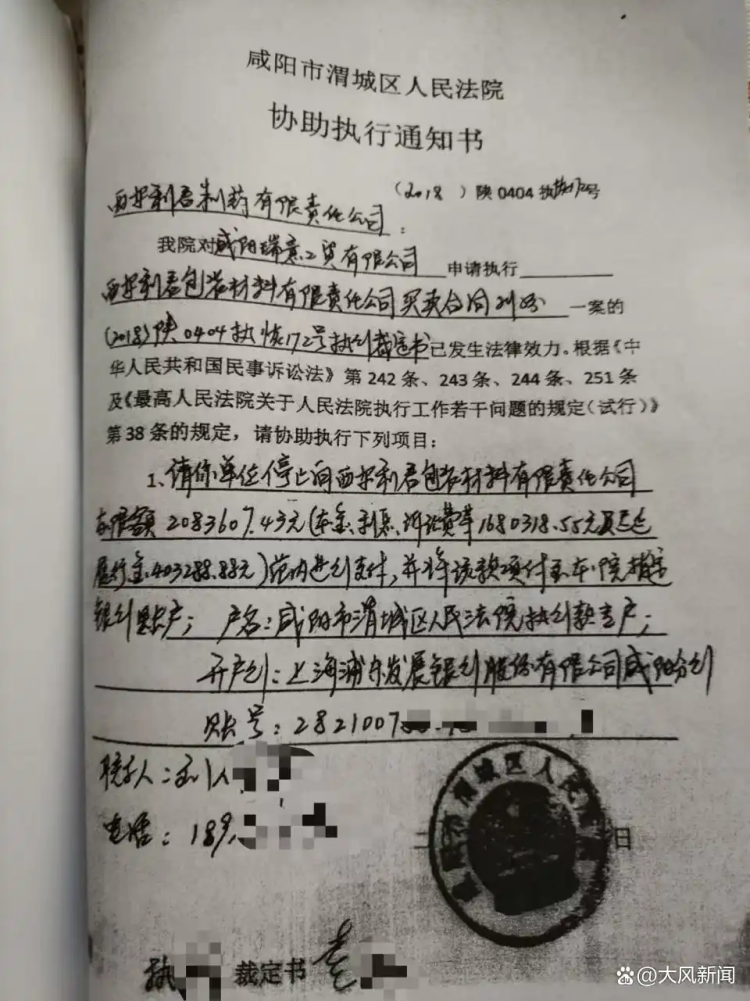 咸阳市渭城区人民法院
协助执行通知书
（2018）陕0404执恢172号
西安利君制药有限责任公司：
我院对咸阳瑞意工贸有限公司申请执行
西安利君包装材料有限责任公司买卖合同纠纷一案的
(2018)陕0404执恢172号执行裁定书已发生法律效力。根据《中
华人民共和国民事诉讼法》第242条、243条、244条、251条
及《最高人民法院关于人民法院执行工作若干问题的规定(试行)》
第38条的规定，请协助执行下列项目：
1、请你单位停止向西安利君包装材料有限责任公司
在限额2083607.43元(本金、利息、诉讼费等1680318.55元及迟延
履行金403288.88元)范内进行支付,并将该款项付至本院指定
银行账户；户名：咸阳市渭城区人民法院执行款专户；
开户行：上海浦东发展银行股份有限公司咸阳分行
账号：2821007
联系人：
电话：189
二 日
咸阳市渭城区人民法院
执 裁定书
@大风新闻